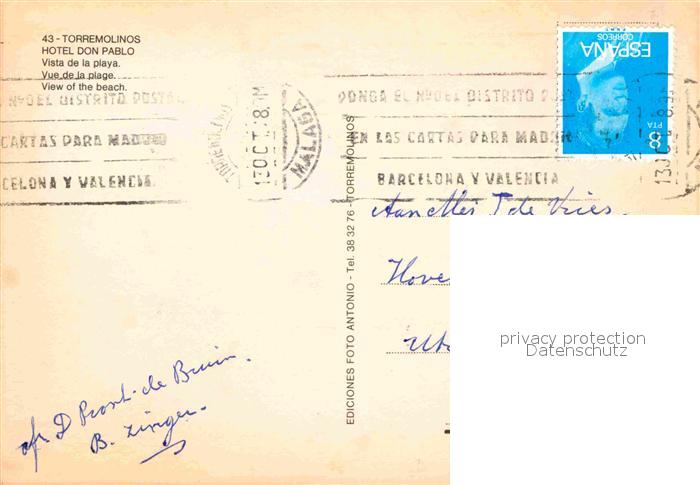 43 - TORREMOLINOS
HOTEL DON PABLO
Vista de la playa.
Vue de la plage.
View of the beach.
ESPAÑA
CORREOS
8 PTA
Nº DEL DISTRITO POSTAL
CARTAS PARA MADRID
CELONA Y VALENCIA
13 OCT
MALAGA
PONGA EL Nº DEL DISTRITO
EN LAS CARTAS PARA MADRID
BARCELONA Y VALENCIA
13 OCT
EDICIONES FOTO ANTONIO - Tel. 38 32 76 - TORREMOLINOS
de Vries.
privacy protection
Datenschutz
de Bruin.
B.